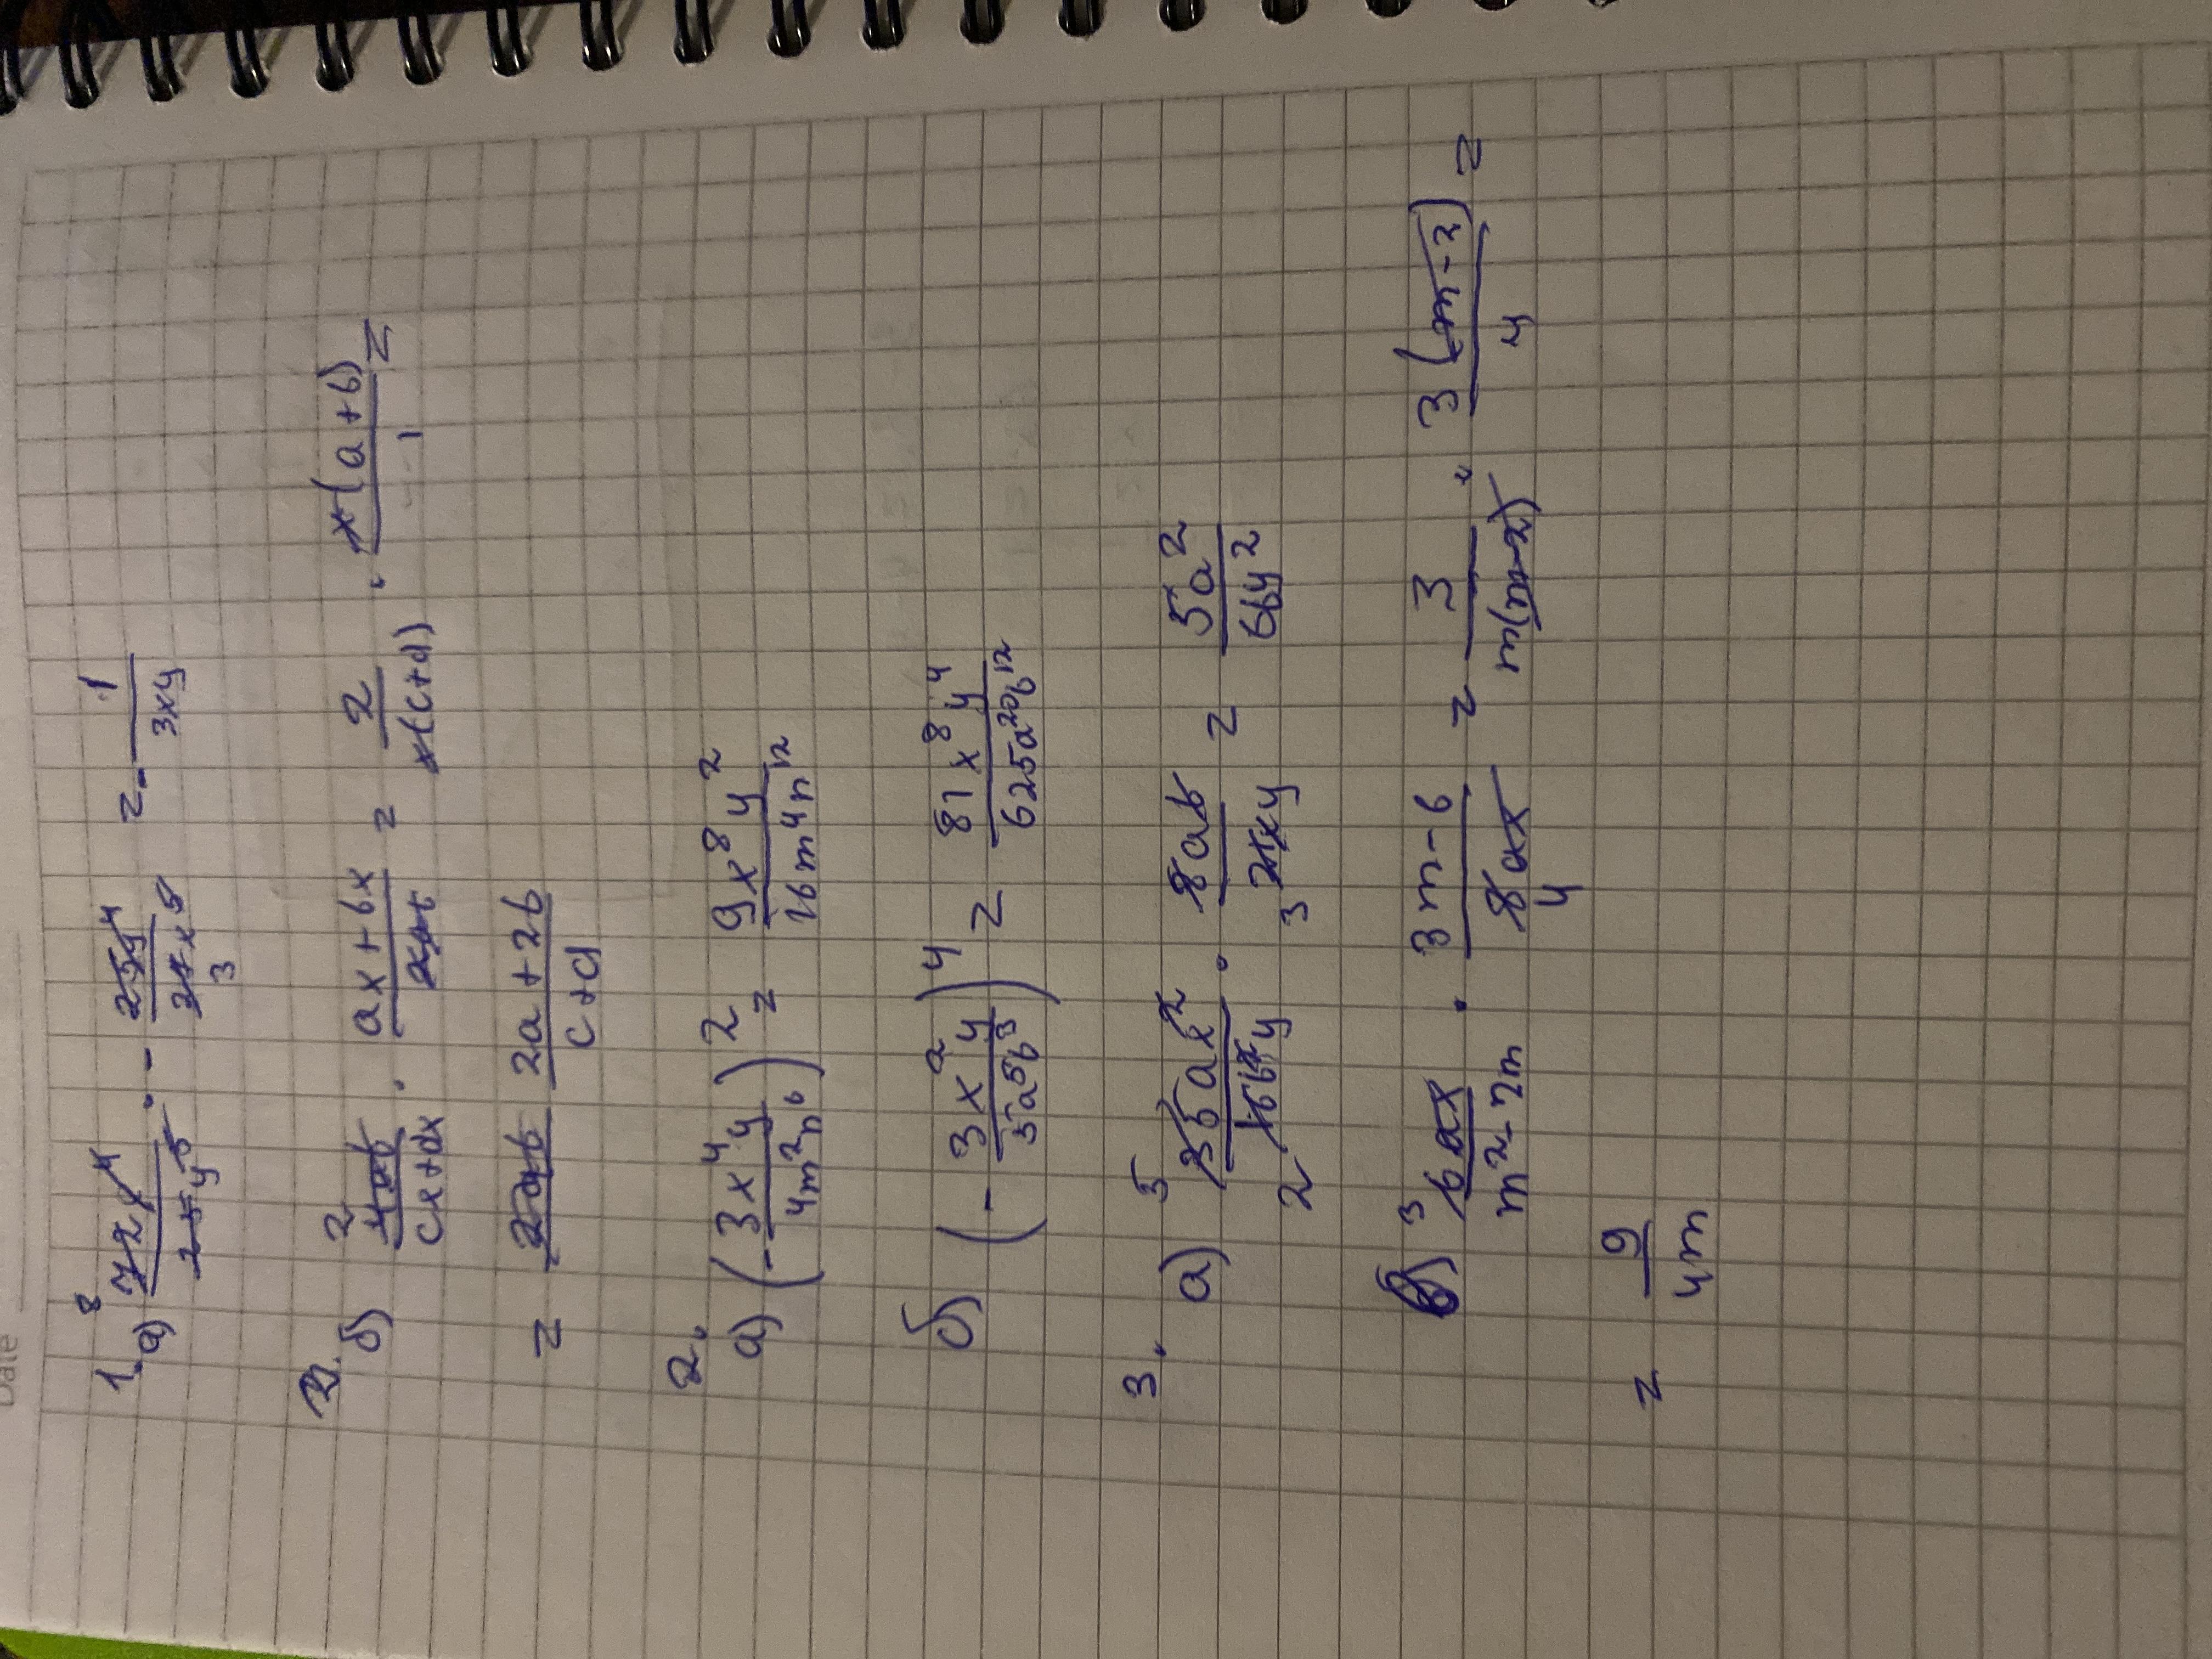 Date
1. а) 8 72x⁴/25y⁵ · - 25y⁴/27x⁵ 3 = - 1/3xy
б) 2 4ab/cx+dx · ax+bx/2ab = 2/x(c+d) · x(a+b)/1 =
= 2a+2b/c+d
2.
а) (-3x⁴y/4m²n⁶)² = 9x⁸y²/16m⁴n¹²
б) (-3x²y/5a⁵b³)⁴ = 81x⁸y⁴/625a²⁰b¹²
3.
а) 5 35ax²/16b²y 2 · 8ab/21xy 3 = 5a²/6by²
б) 3 6ax/m²-2m · 3m-6/8ax 4 = 3/m(m-2) · 3(m-2)/4 =
= 9/4m